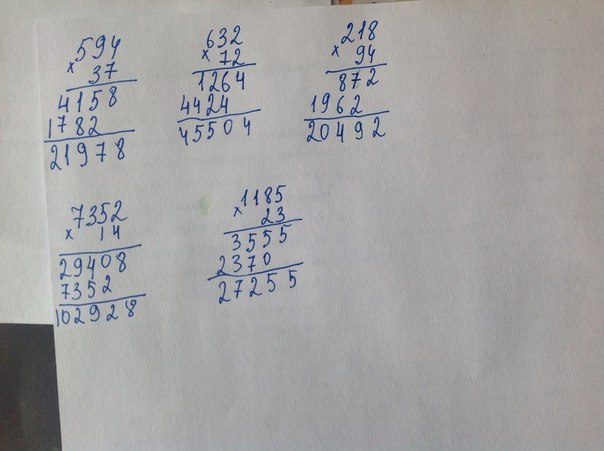 × 594
37
4158
1782
21978
× 632
72
1264
4424
45504
× 218
94
872
1962
20492
× 7352
14
29408
7352
102928
× 1185
23
3555
2370
27255